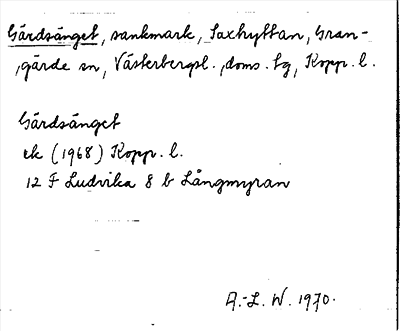 Gårdsänget, sankmark, Saxhyttan, Gran-
gärde sn, Västerbergsl. doms. tg, Kopp. l.
Gårdsänget
ek (1968) Kopp. l.
12 F Ludvika 8 b Långmyran
A.-L. W. 1970.